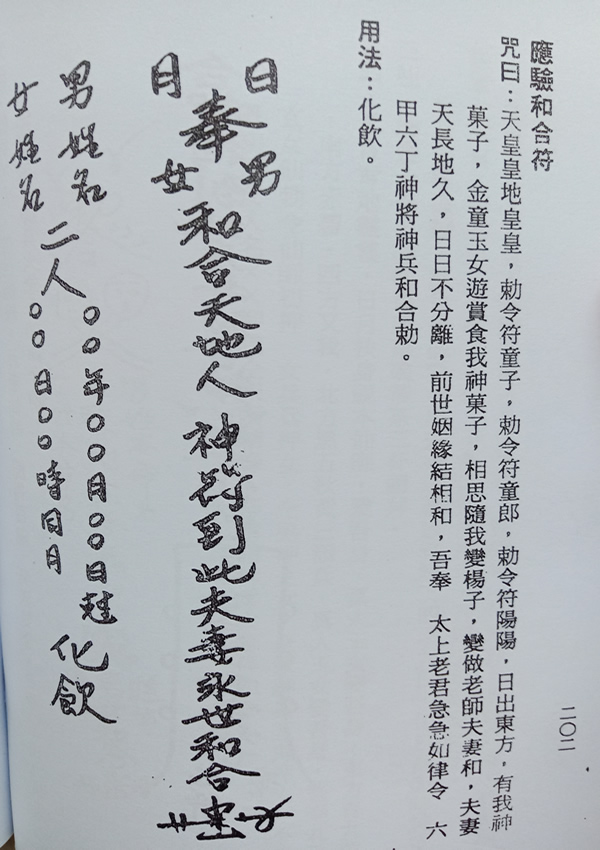 應驗和合符
咒曰：天皇皇地皇皇，勅令符童子，勅令符童郎，勅令符陽陽，日出東方，有我神
菓子，金童玉女遊賞食我神菓子，相思隨我變楊子，變做老師夫妻和，夫妻
天長地久，日日不分離，前世姻緣結相和，吾奉　太上老君急急如律令　六
甲六丁神將神兵和合勅。
用法：化飲。
二〇二
日
月
奉
男
女
和合天地人 神符到此夫妻永世和合
男姓名
女姓名
二人
〇〇年〇〇月〇〇日
〇〇日〇〇時
化飲